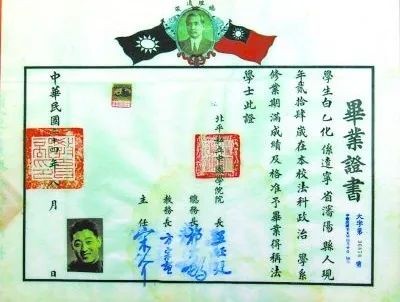 總理遺像
畢業證書
大字第
學生白乙化係遼寧省瀋陽縣人現
年貳拾肆歲在本校法科政治學系
修業期滿成績及格准予畢業得稱法
學士此證
北平私立中國學院院長 王正廷
總務長
教務長 方宗鰲
主任 宋介
中華民國二十四年八月 日